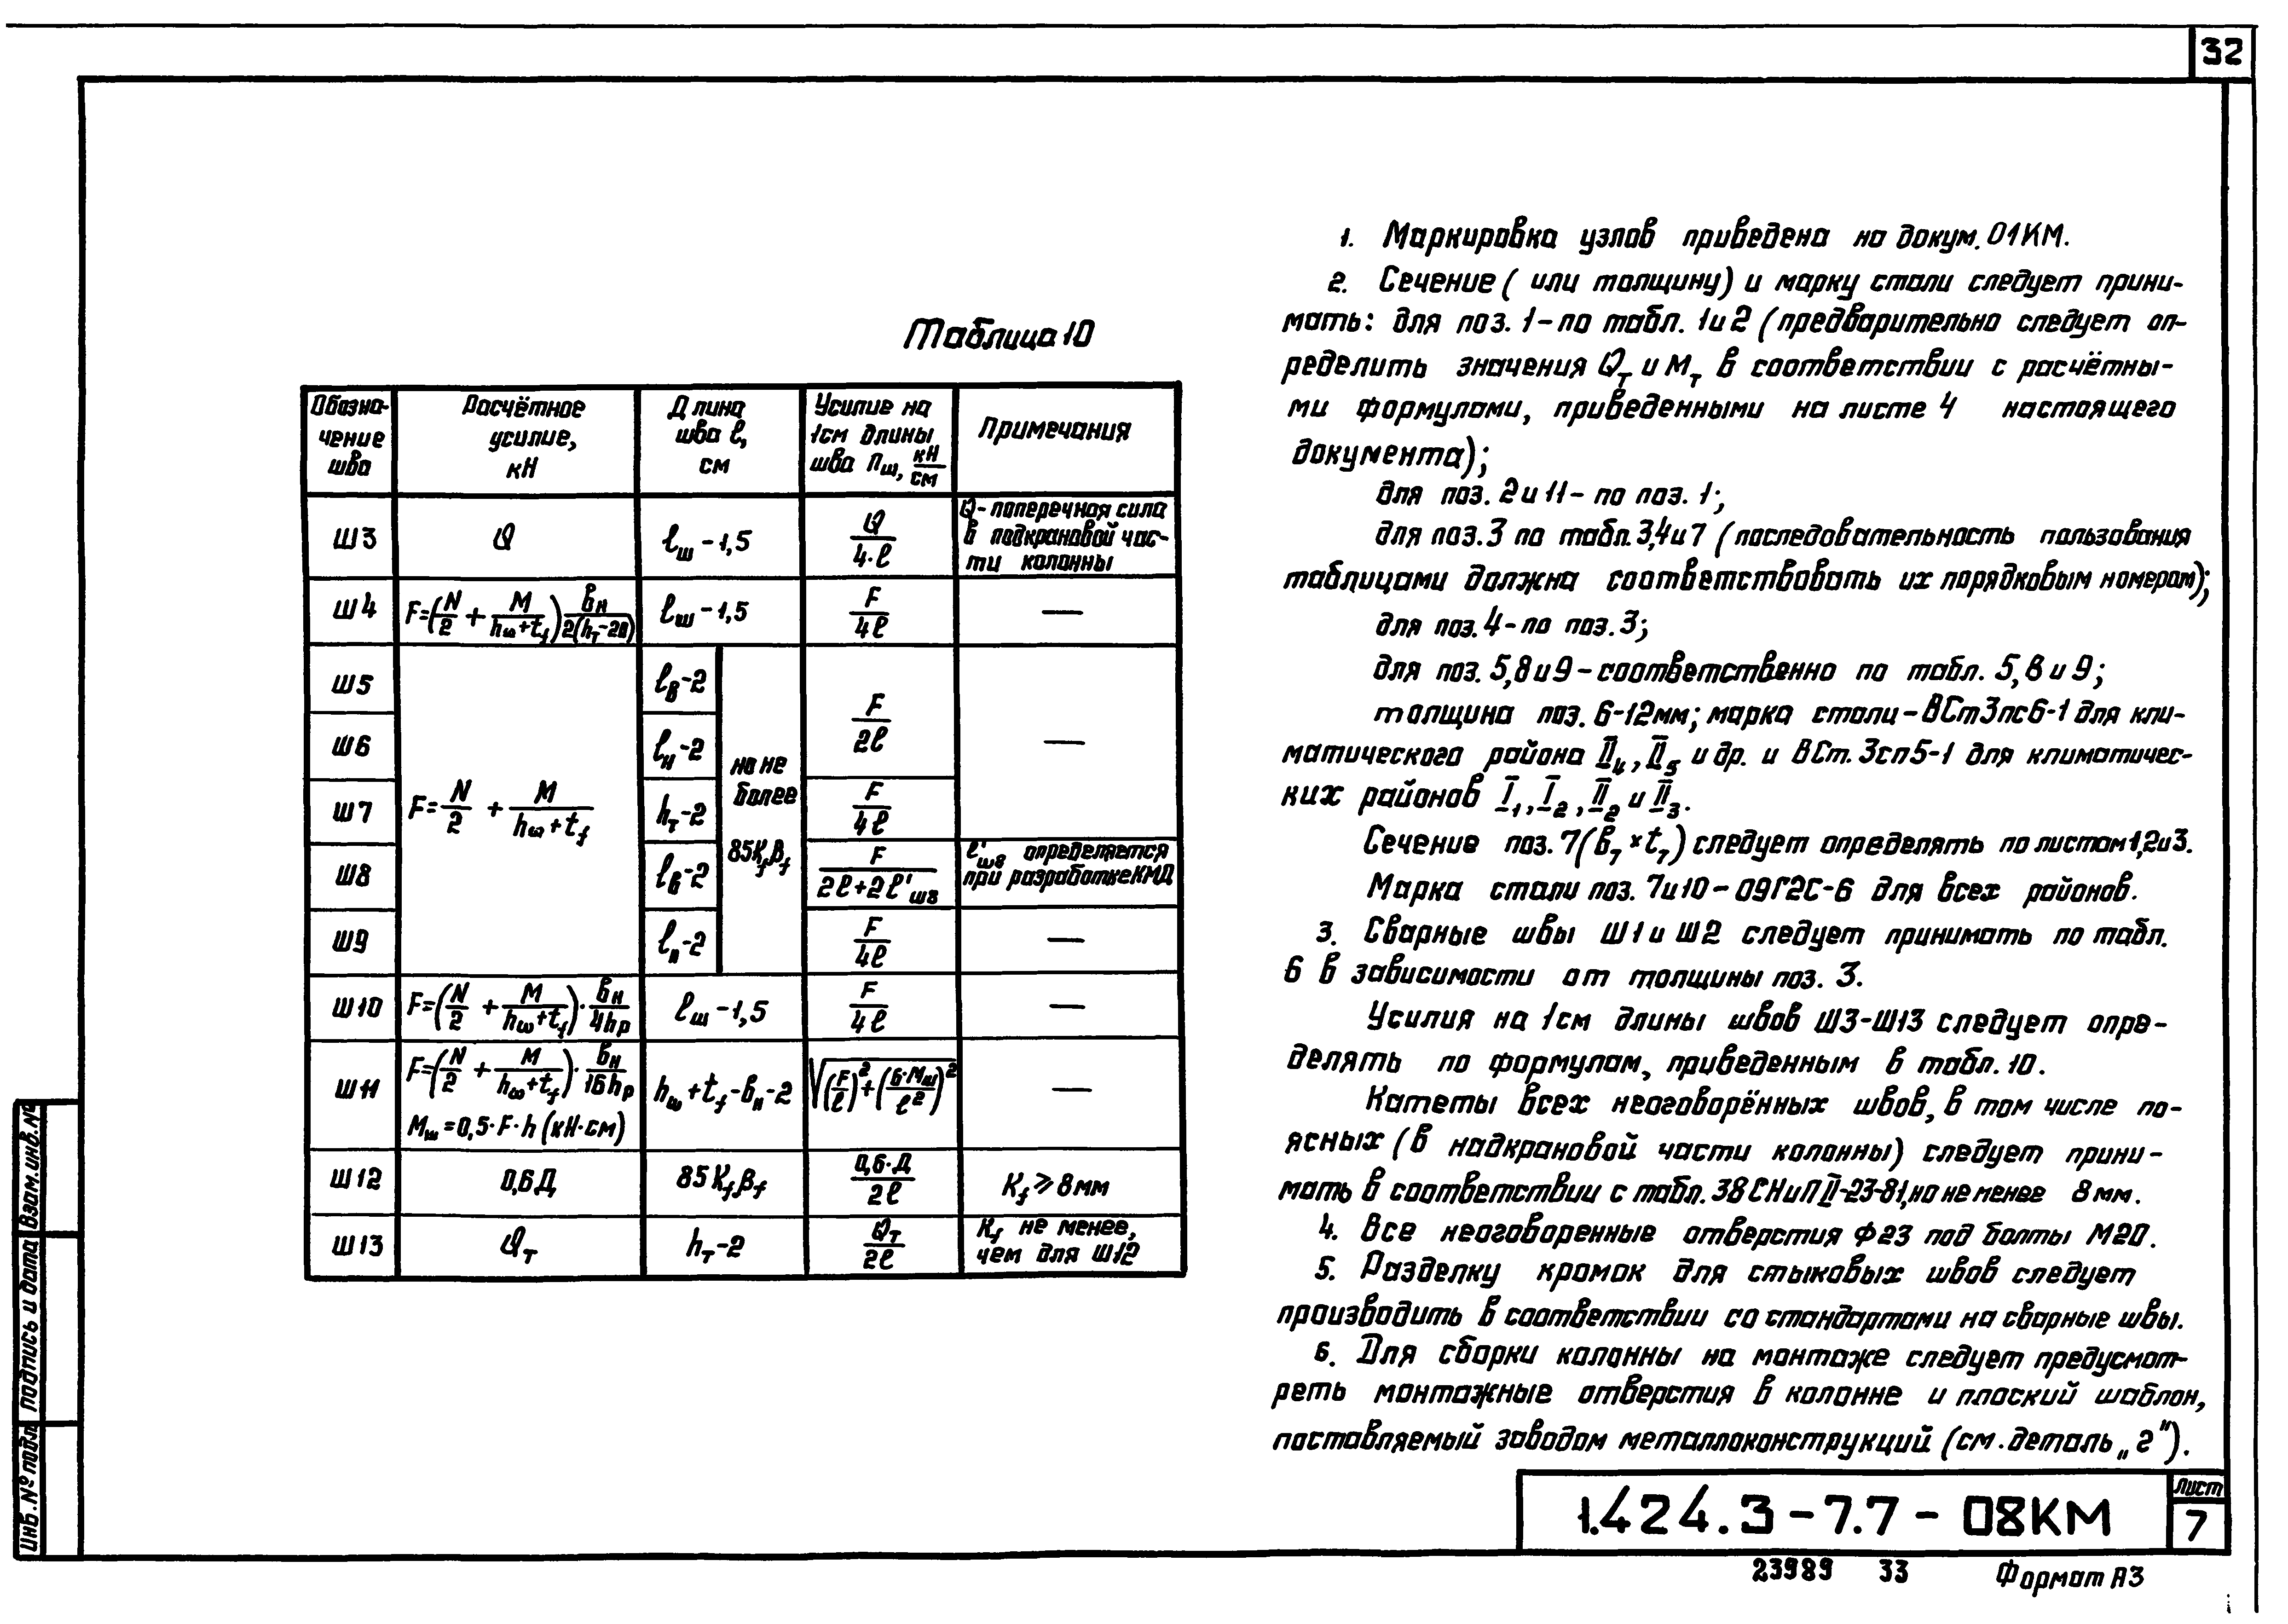 32
Таблица 10
Обозна-
чение
шва
Расчётное
усилие,
кН
Длина
шва ℓ,
см
Усилие на
1см длины
шва nш, кН/см
Примечания
Ш3
Q
ℓш-1,5
Q/(4·ℓ)
Q-поперечная сила
в подкрановой час-
ти колонны
Ш4
F=(N/2 + M/(hω+tf)) вн/(2(hт-20))
ℓш-1,5
F/4ℓ
—
Ш5
ℓв-2
F/2ℓ
Ш6
ℓн-2
—
но не
более
85Kfβf
Ш7
F=N/2 + M/(hω+tf)
hт-2
F/4ℓ
Ш8
ℓв-2
F/(2ℓ+2ℓ'ш8)
ℓ'ш8 определяется
при разработке КМД
Ш9
ℓн-2
F/4ℓ
—
Ш10
F=(N/2 + M/(hω+tf))·вн/4hр
ℓш-1,5
F/4ℓ
—
Ш11
F=(N/2 + M/(hω+tf))·вн/16hр
Mш=0,5·F·h (кН·см)
hω+tf-вн-2
√((F/ℓ)²+(6·Mш/ℓ²)²)
—
Ш12
0,6Д
85Kfβf
0,6·Д/2ℓ
Kf ≥ 8мм
Ш13
Qт
hт-2
Qт/2ℓ
Kf не менее,
чем для Ш12
1. Маркировка узлов приведена на докум. 01КМ.
2. Сечение ( или толщину) и марку стали следует прини-
мать: для поз. 1-по табл. 1и2 (предварительно следует оп-
ределить значения Qт и Mт в соответствии с расчётны-
ми формулами, приведенными на листе 4 настоящего
документа);
для поз. 2и11- по поз. 1;
для поз.3 по табл.3,4и7 (последовательность пользования
таблицами должна соответствовать их порядковым номерам);
для поз.4-по поз.3;
для поз. 5,8и9-соответственно по табл. 5,8и9;
толщина поз. 6-12мм; марка стали-ВСт3пс6-1 для кли-
матического района II4, II5 и др. и ВСт.3сп5-1 для климатичес-
ких районов I1, I2, II2 и II3.
Сечение поз. 7(в7×t7) следует определять по листам1,2и3.
Марка стали поз. 7и10-09Г2С-6 для всех районов.
3. Сварные швы Ш1и Ш2 следует принимать по табл.
6 в зависимости от толщины поз. 3.
Усилия на 1см длины швов Ш3-Ш13 следует опре-
делять по формулам, приведенным в табл. 10.
Катеты всех неоговорённых швов, в том числе по-
ясных (в надкрановой части колонны) следует прини-
мать в соответствии с табл. 38 СНиП II-23-81, но не менее 8мм.
4. Все неоговоренные отверстия Ф23 под болты М20.
5. Разделку кромок для стыковых швов следует
производить в соответствии со стандартами на сварные швы.
6. Для сборки колонны на монтаже следует предусмот-
реть монтажные отверстия в колонне и плоский шаблон,
поставляемый заводом металлоконструкций (см. деталь „2").
Взам.инв.№
Подпись и дата
Инв.№ подл
1.424.3-7.7-08КМ
Лист
7
23989 33
Формат А3